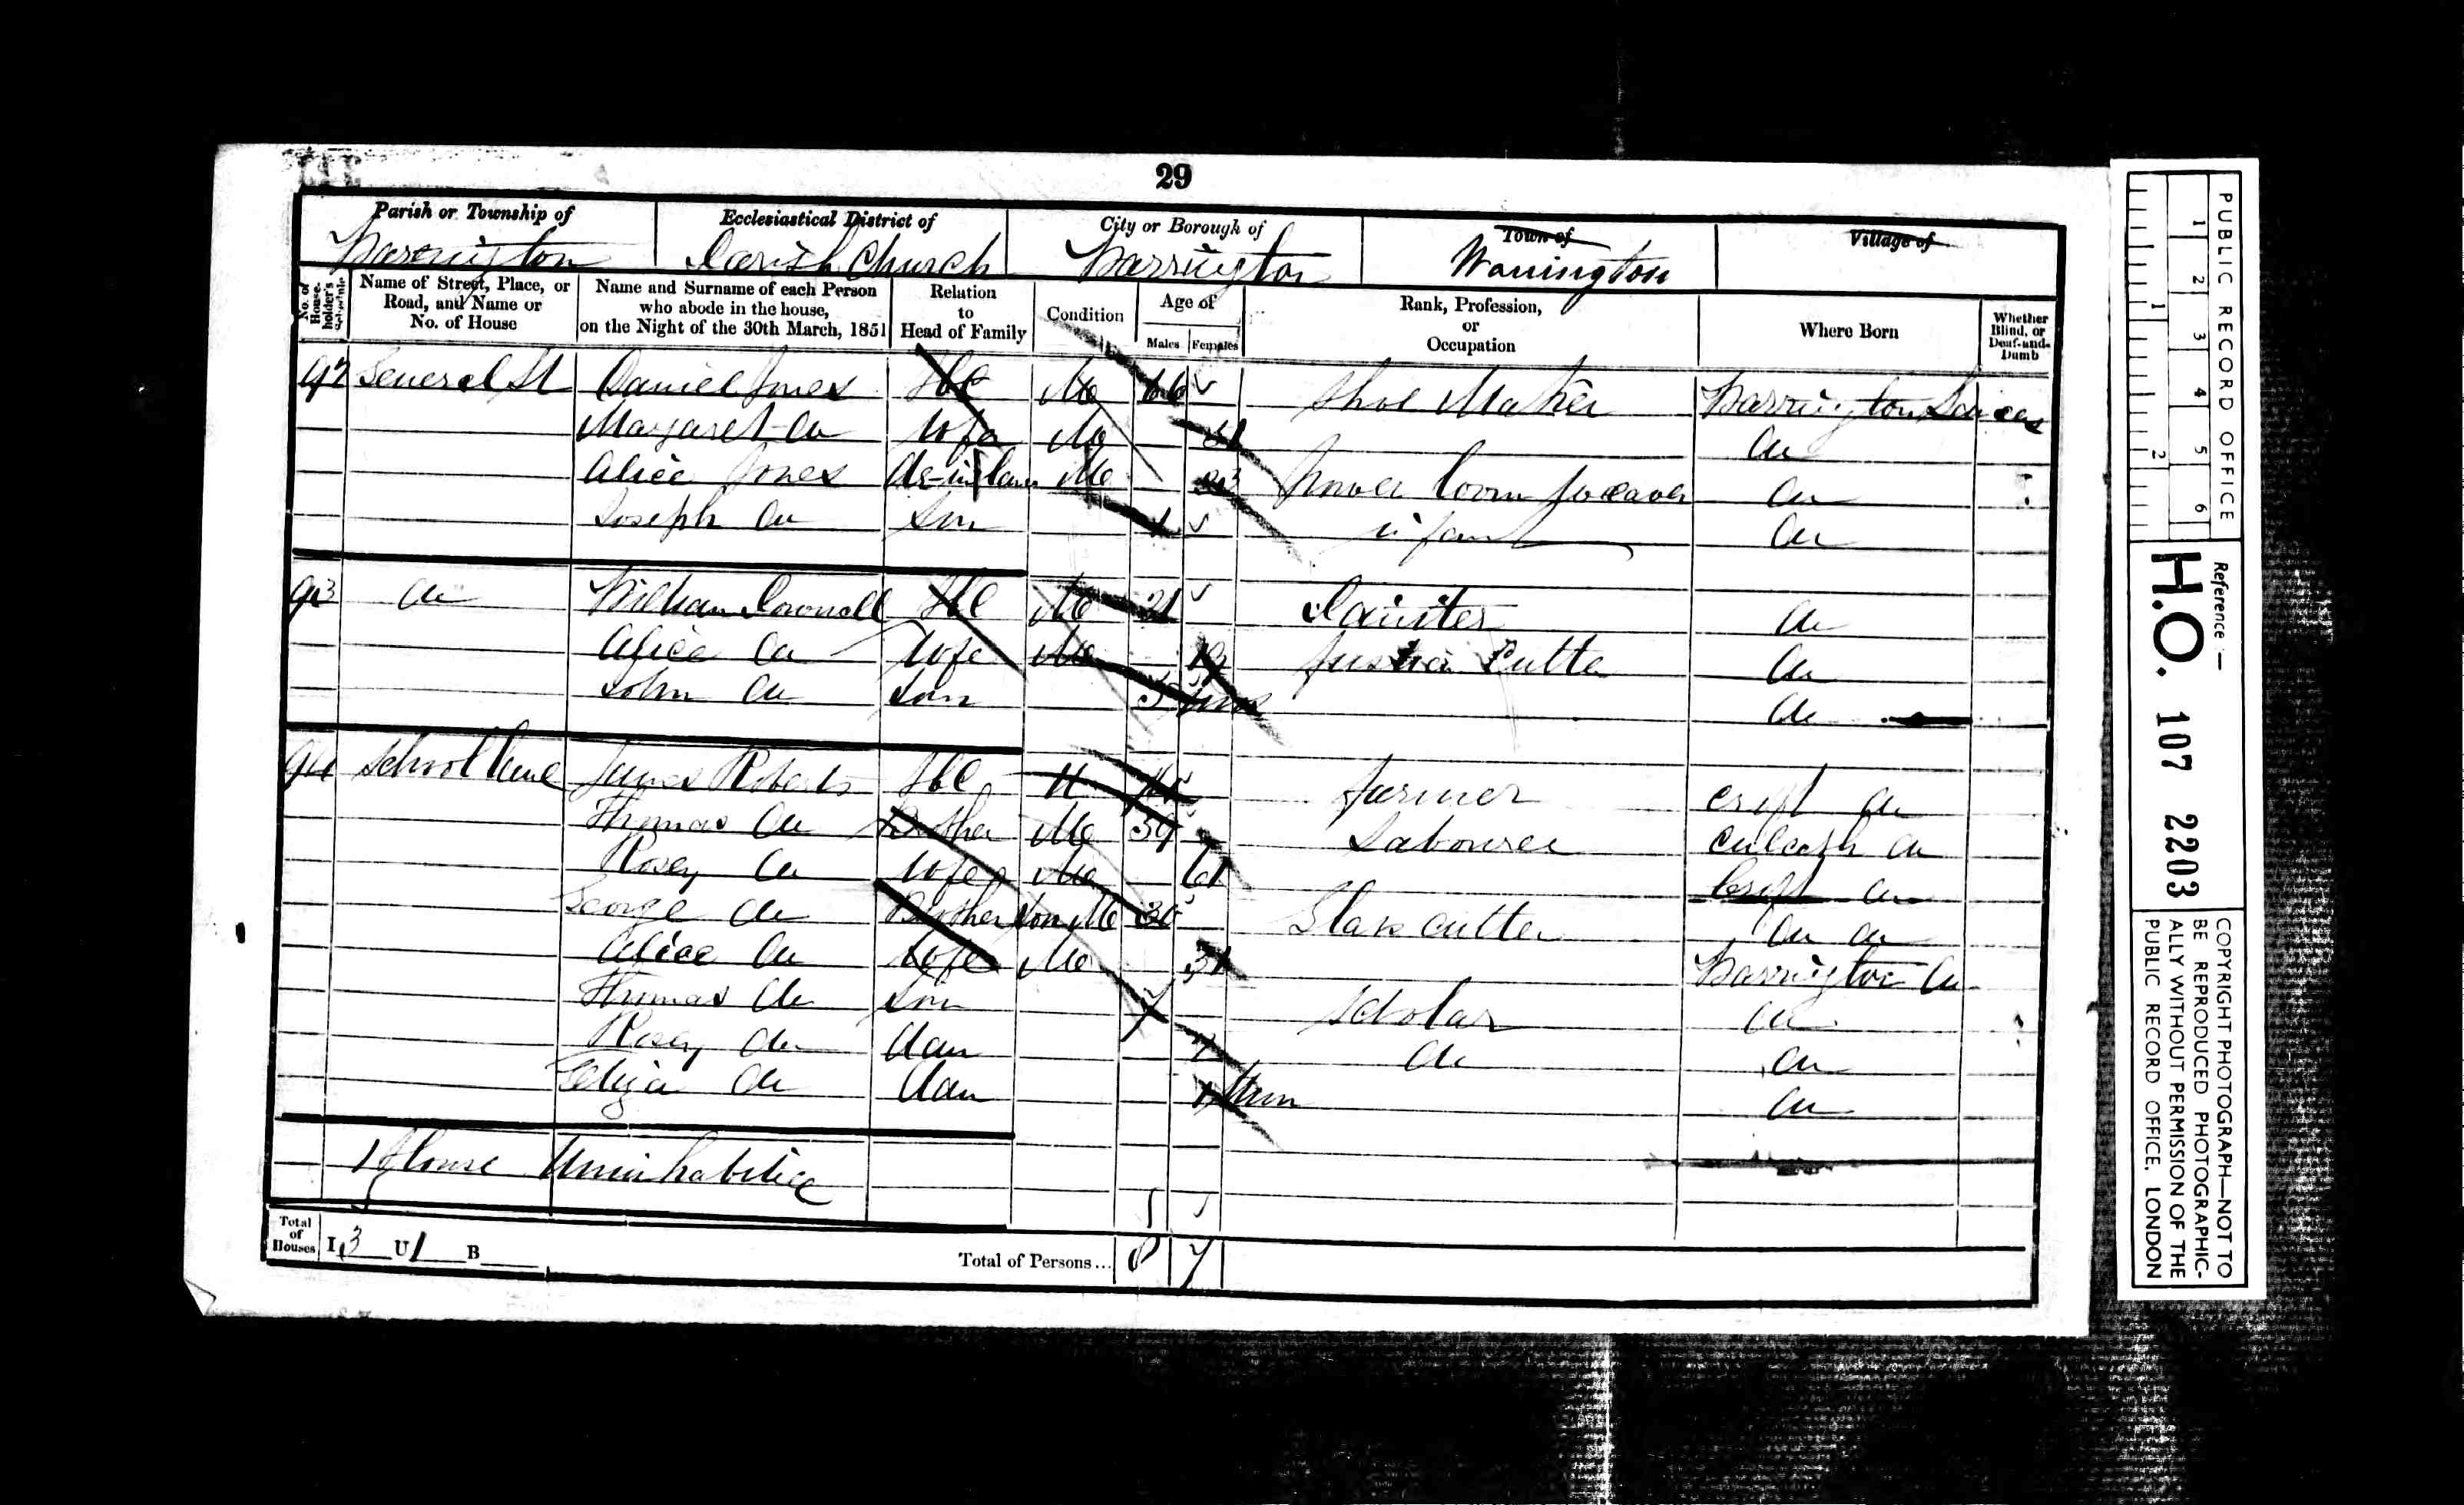 29
Parish or Township of Ecclesiastical District of City or Borough of Town of Village of
Warrington Parish Church Warrington Warrington
No. of House-holder's Schedule Name of Street, Place, or Road, and Name or No. of House Name and Surname of each Person who abode in the house, on the Night of the 30th March, 1851 Relation to Head of Family Condition Age of Males Females Rank, Profession, or Occupation Where Born Whether Blind, or Deaf-and-Dumb
92 General St Daniel Jones Hd M 66 Shoe Maker Warrington Lancas
Margaret Do Wife M 51 Do
Alice Jones M 23 Power loom Weaver Do
Joseph Do Son 1 infant Do
93 Do William Hd M 21 Painter Do
Alice Do Wife M 19 Fustian Cutter Do
John Do Son 5 mos Do
94 School Lane James Roberts Hd Farmer Croft Do
Thomas Do Brother M 59 Labourer Culcheth Do
Rosey Do Wife M 61 Croft Do
George Do Brother Son M 30 Cutter Do Do
Alice Do Wife M 31 Warrington Do
Thomas Do Son 7 Scholar Do
Rosey Do Dau Do Do
Eliza Do Dau Do
1 House Uninhabited
Total of Houses I 3 U 1 B Total of Persons... 8 7
PUBLIC RECORD OFFICE
1 2 3 4 5 6
1 2
Reference:—
H.O. 107 2203
COPYRIGHT PHOTOGRAPH—NOT TO
BE REPRODUCED PHOTOGRAPHIC-
ALLY WITHOUT PERMISSION OF THE
PUBLIC RECORD OFFICE, LONDON